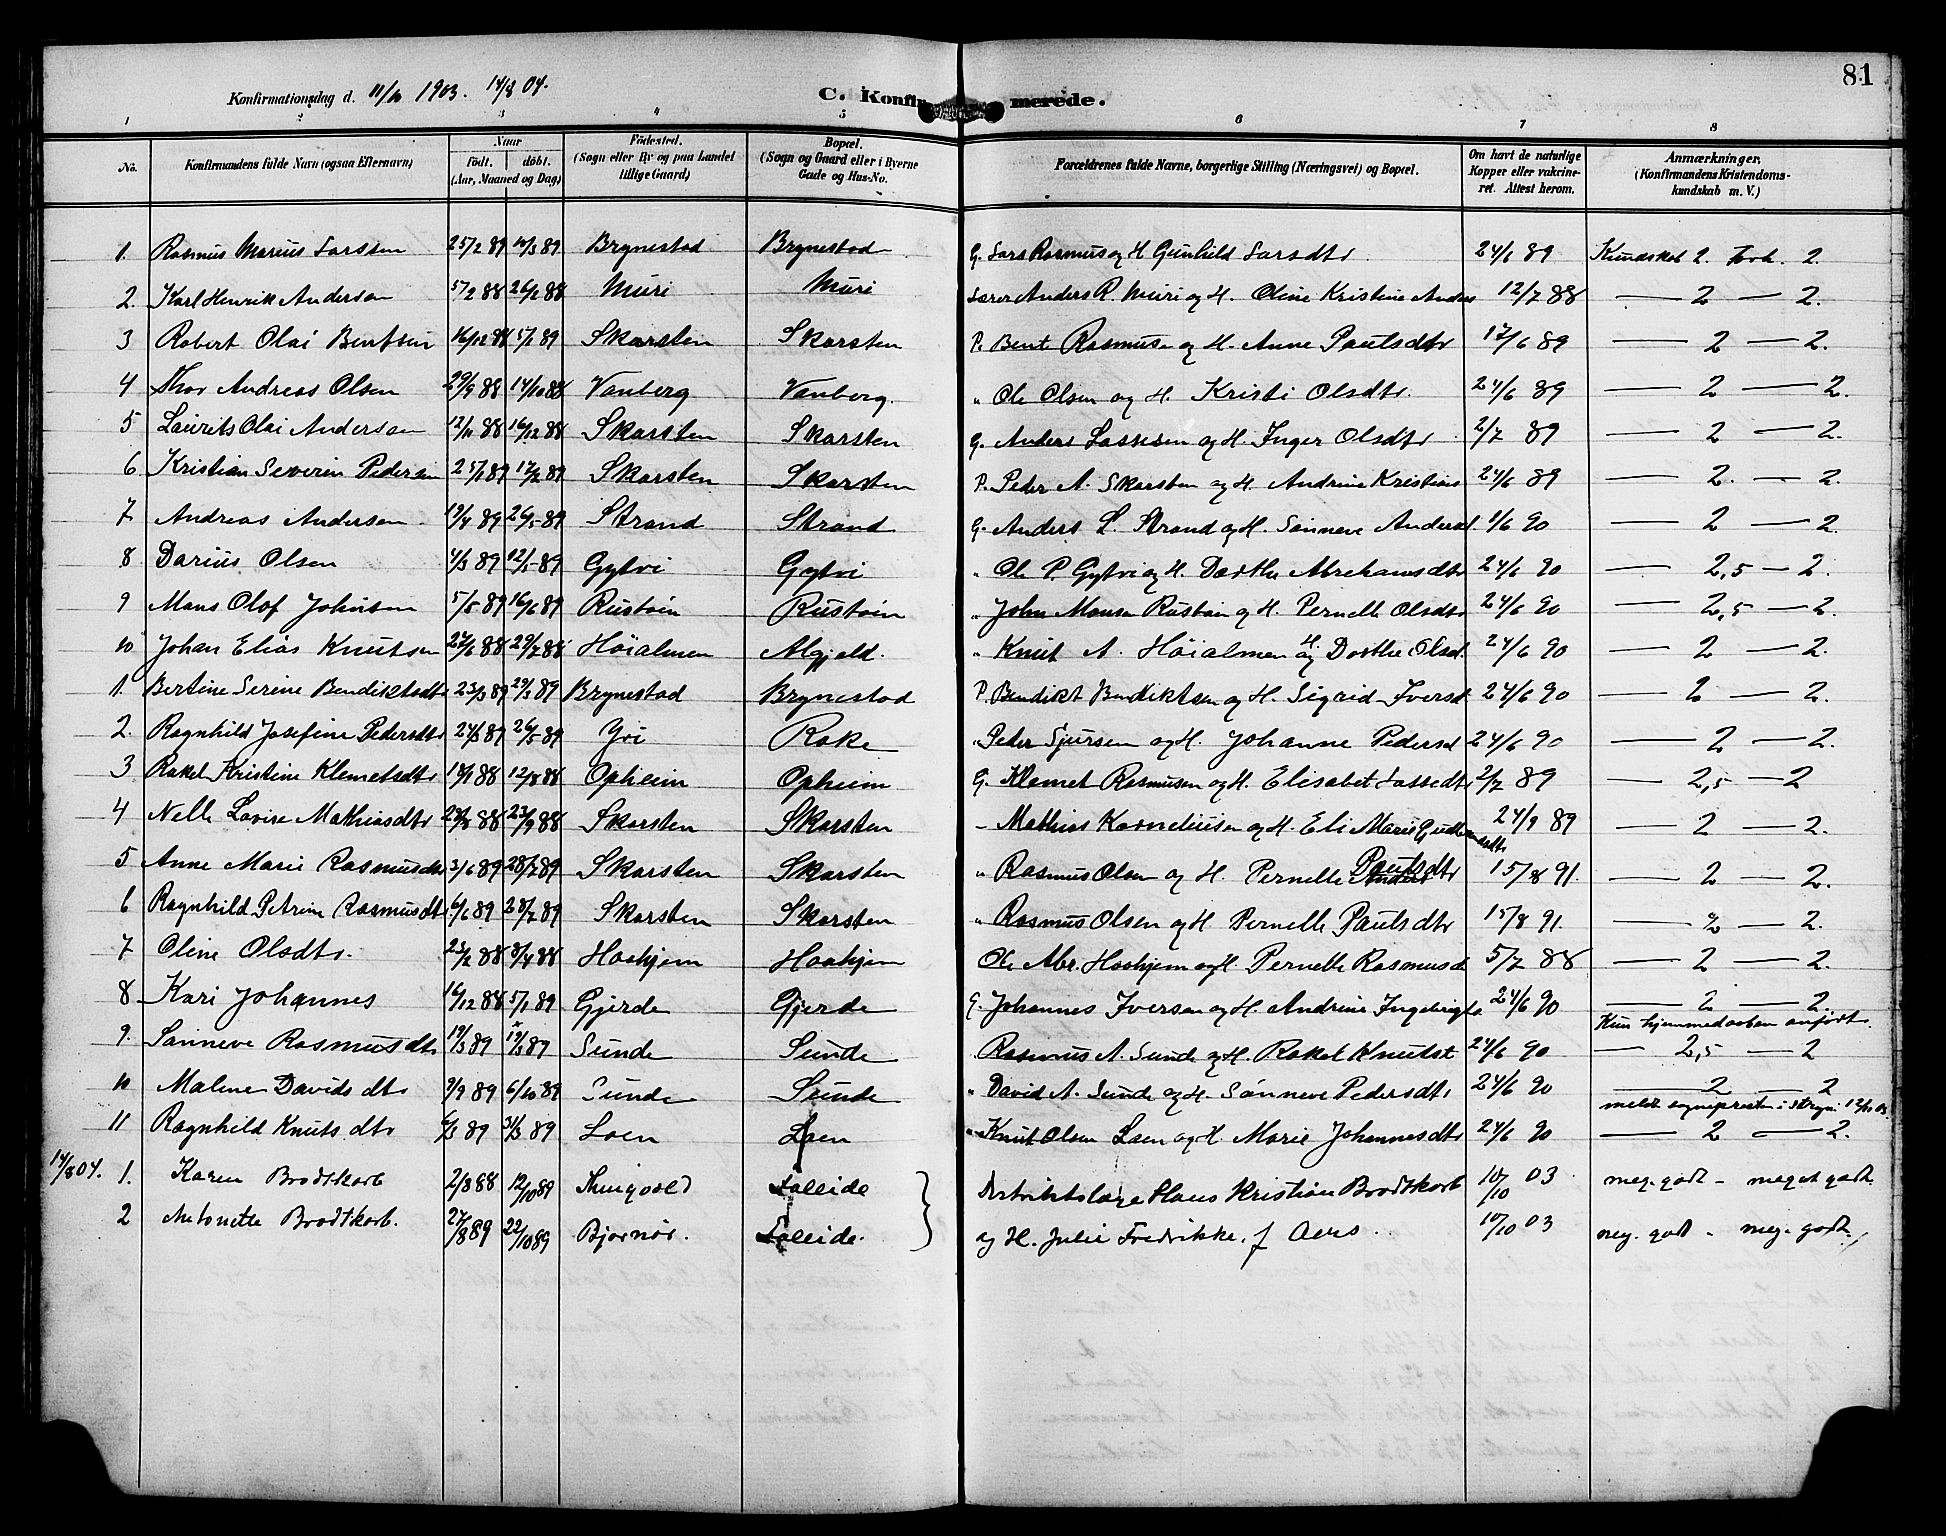 81
Konfirmationsdag d. 11/10 1903. 14/8 04. C. Konfirmerede.
1 2 3 4 5 6 7 8
No. Konfirmandens fulde Navn (ogsaa Efternavn) Naar født. døbt. (Aar, Maaned og Dag) Fødested. (Sogn eller By og paa Landet tillige Gaard) Bopæl. (Sogn og Gaard eller i Byerne Gade og Hus-No. Forældrenes fulde Navne, borgerlige Stilling (Næringsvei) og Bopæl. Om havt de naturlige Kopper eller vakcineret. Attest herom. Anmærkninger. (Konfirmandens Kristendomskundskab m. V.)
1. Rasmus Marius Larsten 25/2 89 10/3 89 Brynestad Brynestad G. Lars Rasmus og H. Gunhild Larsdtr 24/6 89 Kundskab 2. Forh. 2.
2. Karl Henrik Andersen 5/2 88 26/2 88 Muri Muri Lærer Anders R. Muri og H. Oline Kristine Anders 12/7 88 — 2 — 2.
3 Robert Olai Bentsen 16/12 88 5/1 89 Skarsten Skarsten P. Bent Rasmusen og H. Anne Paulsdtr 17/6 89 — 2 — 2.
4 Thor Andreas Olsen 29/9 88 14/10 88 Vanberg Vanberg. " Ole Olsen og H. Kristi Olsdtr. 24/6 89 — 2 — 2.
5 Laurits Olai Andersen 12/11 88 16/12 88 Skarsten Skarsten G. Anders Lassesen og H. Inger Olsdtr 2/7 89 — 2 — 2.
6 Kristian Severin Pedersen 25/1 89 17/2 89 Skarsten Skarsten P. Peder A. Skarsten og H. Andrine Kristians 24/6 89 — 2. — 2.
7 Andreas Andersen 19/4 89 26/5 89 Strand Strand G. Anders L. Strand og H. Sønneve Andersd. 1/6 90 — 2 — 2.
8 Darius Olsen 4/3 89 12/5 89 Gytvi Gytvi " Ole P. Gytvi og H. Dorthe Abrehamsdtr 24/6 90 — 2,5 — 2.
9 Mons Olof Johnsen 5/5 89 16/6 89 Rustøin Rustøin " John Monsen Rustøin og H. Pernelle Olsdtr 24/6 90 — 2,5 — 2.
10 Johan Elias Knutsen 27/6 88 29/7 88 Høialmen Algjeld. " Knut A. Høialmen og H. Dorthe Olsd. 24/6 90 — 2 — 2.
1. Bertine Serine Bendiktsdtr 23/3 89 29/3 89 Brynestad Brynestad P. Bendikt Bendiktsen og H. Sigrid Iversd 24/6 90 — 2 — 2.
2. Ragnhild Josefine Pedersdtr 24/3 89 26/5 89 Yri Rake " Peder Sjursen og H. Johanne Pedersd 24/6 90 — 2 — 2.
3 Rakel Kristine Klemetsdtr 88 12/8 88 Opheim Opheim G. Klemet Rasmusen og H. Elisabet Lassedtr 2/7 89 — 2,5 — 2
4 Nelle Lovise Mathiasdtr 29/8 88 23/9 88 Skarsten Skarsten " Mathias Korneliusen og H. Eli Marie 24/9 89 — 2 — 2.
5 Anne Marie Rasmusdtr 3/6 89 28/7 89 Skarsten Skarsten " Rasmus Olsen og H. Pernelle Paulsdtr 15/8 91. — 2 — 2.
6 Ragnhild Petrine Rasmusdtr 6/6 89 28/7 89 Skarsten Skarsten " Rasmus Olsen og H Pernelle Paulsdtr 15/8 91. — 2 — 2.
7 Oline Olsdtr. 23/2 88 8/4 88 Haahjem Haahjem Ole Abr. Haahjem og H. Pernelle Rasmusd 5/7 88 — 2 — 2.
8 Kari Johannes 16/12 88 5/1 89 Gjerde Gjerde G. Johannes Iversen og H. Andrine Ingebrigts 24/6 90 — 2 — 2.
Kun hjemmedaaben anført.
9. Sønneve Rasmusdtr 19/3 89 19/3 89 Sunde Sunde Rasmus A. Sunde og H. Rakel Knutsd 24/6 90 — 2,5 — 2
10 Malene Davidsdtr 3/9 89 6/10 89 Sunde Sunde " David A. Sunde og H. Sønneve Pedersdtr 24/6 90 — 2 — 2
meldt sogneprest i Stryn 12/11 03
11 Ragnhild Knutsdtr 6/3 89 31/3 89 Loen Loen " Knut Olsen Loen og H. Marie Johannesdtr 24/6 90 — 2 — 2.
14/8 04. 1. Karen Brodtkorb 2/8 88 12/10 89 Thingvold Faleide Distriktslæge Hans Kristian Brodtkorb 10/10 03 meg. godt - meget godt.
2 Antonette Brodtkorb. 27/8 89 22/10 89 Bjørnør. Faleide. og H. Julie Fredrikke, f Aers. 10/10 03 meg. godt - meg. godt.